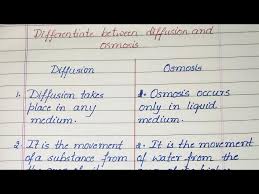 Differentiate between diffusion and
osmosis.
Diffusion
Osmosis
1. Diffusion takes
place in any
medium.
1. Osmosis occurs
only in liquid
medium.
2. It is the movement
of a substance from
2. It is the movement
of water from the